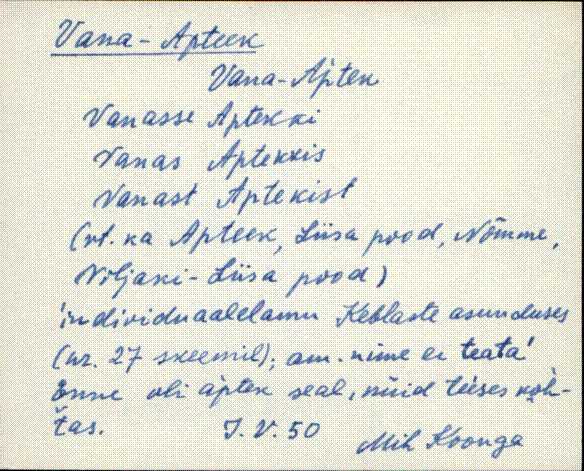 Vana-Apteek
Vana-Aptek
Vanasse Aptekki
Vanas Aptekkis
Vanast Aptekist
(vt. ka Apteek, Liisa pood, Nõmme,
Viljaki-Liisa pood)
individuaalelamu Keblaste asunduses
(nr. 27 skeemil); am. nime ei teata
Enne oli aptek seal, nüid teises koh-
tas. J. V. 50
Mih Koonga